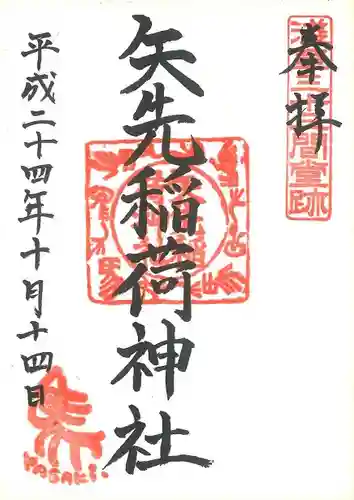 奉拝
浅草三十三間堂跡
矢先稲荷神社
平成二十四年十月十四日